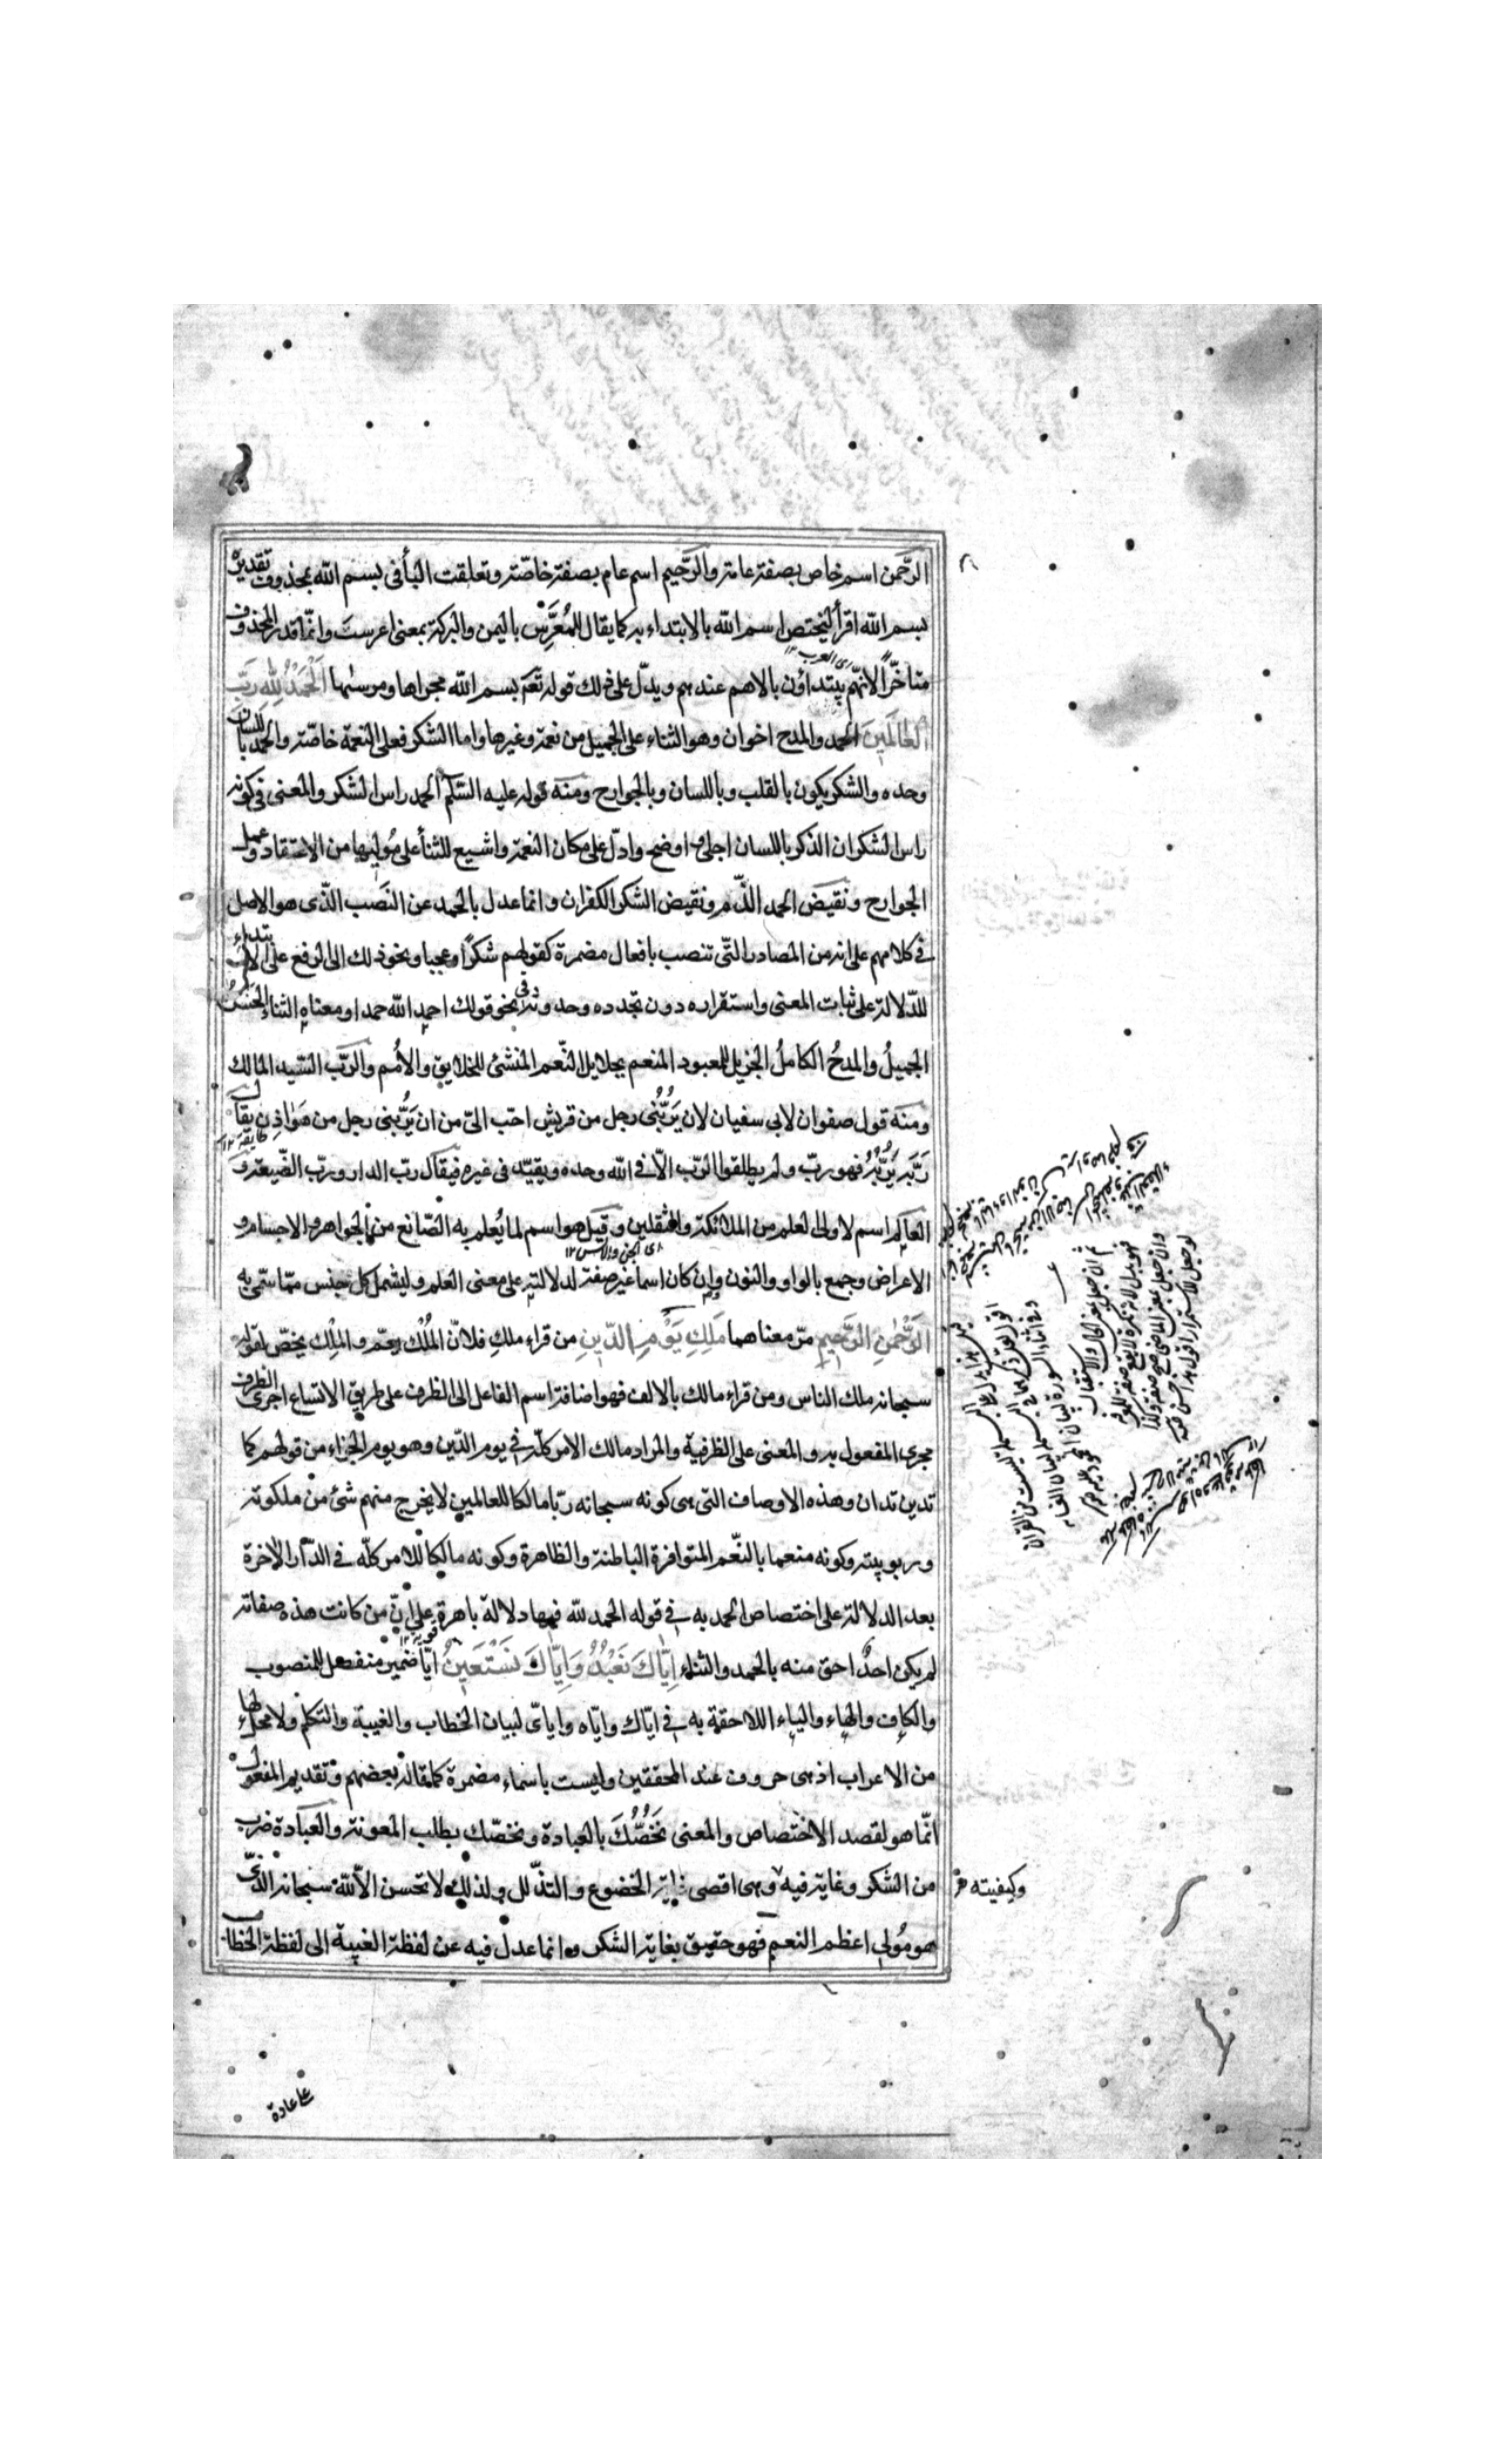 الرَّحمن اسم خاص بصفة عامة والرَّحيم اسم عام بصفة خاصّة وتعلقت البأ فى بسم الله بمحذوف تقديره
بسم الله اقرأ ليختص اسم الله بالابتداء به كما يقال للمُعَرِّس باليمن والبركة بمعنى اعرست وانّما قدر المحذوف
متاخّرًا لانهّم يبتداؤن بالاهم عندهم ويدلّ على ذلك قوله تعم بسم الله مجراها ومرسٰىها اَلْحَمْدُ لِلّٰهِ رَبِّ
العَالَمِينَ الحمد والمدح اخوان وهو الثناء على الجميل من نعمة وغيرها واما الشكر فعلى النعمة خاصّة والحمد باللسان
وحده والشكر يكون بالقلب وباللسان وبالجوارح ومنه قوله عليه السّلم الحمد راس الشكر والمعنى فى كونه
راس الشكر ان الذكر باللسان اجلى واوضح وادلّ على مكان النعمة واشيع للثنأ على مُوليها من الاعتقاد وعمل
الجوارح ونقيض الحمد الذّم ونقيض الشكر الكفران وانما عدل بالحمد عن النَصب الذّى هو الاصل
فى كلامهم على انه من المصادر التّى تنصب بافعال مضمرة كقولهم شكرًا وعجبا ونحو ذلك الى الرفع على الابتداء
للدّلالة على ثبات المعنى واستقراره دون تجدده وحدوثه فى نحو قولك احمد الله حمدا ومعناه الثناء الحَسَنُ
الجميلُ والمدحُ الكاملُ الجزيل للمعبود المنعم بجلايل النّعم المنشئ للخلايق والأُمم والرّب السّيد المالك
ومنه قول صفوان لابى سفيان لان يَرُبُّنى رجل من قريش احبّ الىّ من ان يَرُبَّنى رجل من هَوَاذِن يقال
رَبَّه يَرُبُّهُ فهو ربّ ولم يطلقوا الرّب الّا فى الله وحده ويقيّد فى غيره فيقال ربّ الدار وربّ الضّيعة و
العالم اسم لاولى العلم من الملائكة والثقلين وقيل هو اسم لما يُعلم به الصّانع من الجواهر والاجسام و
اى الجن والانس ١٢
الاعراض وجمع بالواو والنون وإن كان اسما غير صفة لدلالته على معنى العلم وليشمل كل جنس ممّا سمّى به
الرَّحْمٰنِ الرَّحِيمِ مرّ معناهما مَلِكِ يَوْمِ الدِّينِ من قراء ملك فلانّ المُلْك يعمّ والمِلْك يخصّ لقوله
سبحانه ملك الناس ومن قراء مالك بالالف فهو اضافة اسم الفاعل الى الظرف على طريق الاتساع اجرى الظرف
مجرى المفعول به والمعنى على الظرفية والمراد مالك الامر كلّه فى يوم الدّين وهو يوم الجزاء من قولهم كما
تدين تدان وهذه الاوصاف التى هى كونه سبحانه ربّا مالكا للعالمين لا يخرج منهم شئ من ملكوته
وربوبيته وكونه منعما بالنّعم المتوافرة الباطنة والظاهرة وكونه مالكا للامر كلّه فى الدّار الآخرة
بعد الدلالة على اختصاص الحمد به فى قوله الحمد للّه فيها دلالة باهرة على انّ من كانت هذه صفاته
لم يكن احدٌ احق منه بالحمد والثناء اِيَّاكَ نَعْبُدُ وَاِيَّاكَ نَسْتَعِينُ ايّا ضمير منفصل للمنصوب
والكاف والهاء والياء اللاحقة به فى ايّاك وايّاه واياىّ لبيان الخطاب والغيبة والتكلم ولا محل لها
من الاعراب اذ هى حروف عند المحققين وليست باسماء مضمرة كما قاله بعضهم وتقديم المفعول
انّما هو لقصد الاختصاص والمعنى نَخُصُّكَ بالعبادة ونخصّك بطلب المعونة والعبادة ضرب
من الشكر وغاية فيه وهى اقصى غاية الخضوع والتذّلل ولذلك لا تحسن الّا للّه سبحانه الذّى
هو مُولى اعظم النعم فهو حقيق بغاية الشكر وانما عدل فيه عن لفظة الغيبة الى لفظة الخطاب
وكيفيته
عاعادة